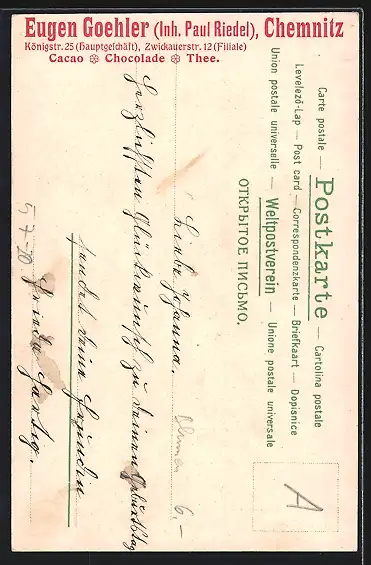 Eugen Goehler (Inh. Paul Riedel), Chemnitz
Königstr. 25 (Hauptgeschäft), Zwickauerstr. 12 (Filiale)
Cacao ❁ Chocolade ❁ Thee.
Carte postale — Postkarte — Cartolina postale
Levelező-Lap — Post card — Correspondenzkarte — Briefkaart — Dopisnice
Union postale universelle — Weltpostverein — Unione postale universale
ОТКРЫТОЕ ПИСЬМО.
A
Liebe Johanna.
Herzlichsten Glückwunsch zu deinem Geburtstag
sendet deine Freundin
Frieda Hartig.
Blumen 6,–